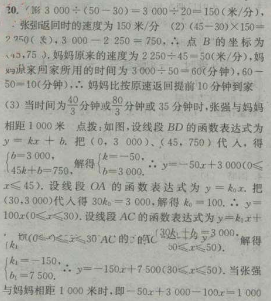 20. 3 000÷(50-30)=3 000÷20=150(米/分),
张强返回时的速度为 150 米/分 (2) (45-30)×150=
2 250(米), 3 000-2 250=750, ∴ 点 B 的坐标为
(45,75 ). 妈妈原来的速度为 2 250÷45=50(米/分), 妈
妈原来回家所用的时间为 3 000÷50=60(分钟), 60-
50=10(分钟), ∴ 妈妈比按原速返回提前 10 分钟到家
(3) 当时间为 40/3 分钟或 80/3 分钟或 35 分钟时, 张强与妈妈
相距 1 000 米 点拨: 如图, 设线段 BD 的函数表达式为
y = kx + b. 把 (0, 3 000), (45, 750) 代入, 得
{b=3 000, 45k+b=750, 解得 {k=-50, b=3 000. ∴ y=-50x+3 000(0≤
x≤45). 设线段 OA 的函数表达式为 y=k₀x. 把
(30,3 000)代入得 30k₀=3 000, 解得 k₀=100. ∴ y=
100x(0≤x≤30). 设线段 AC 的函数表达式为 y=k₁x+
30k₁+b₁=3 000, 解得
{k₁=-150, b₁=7 500. ∴ y=-150x+7 500(30≤x≤50). 当张强
与妈妈相距 1 000 米时, 即-50x+3 000-100x=1 000